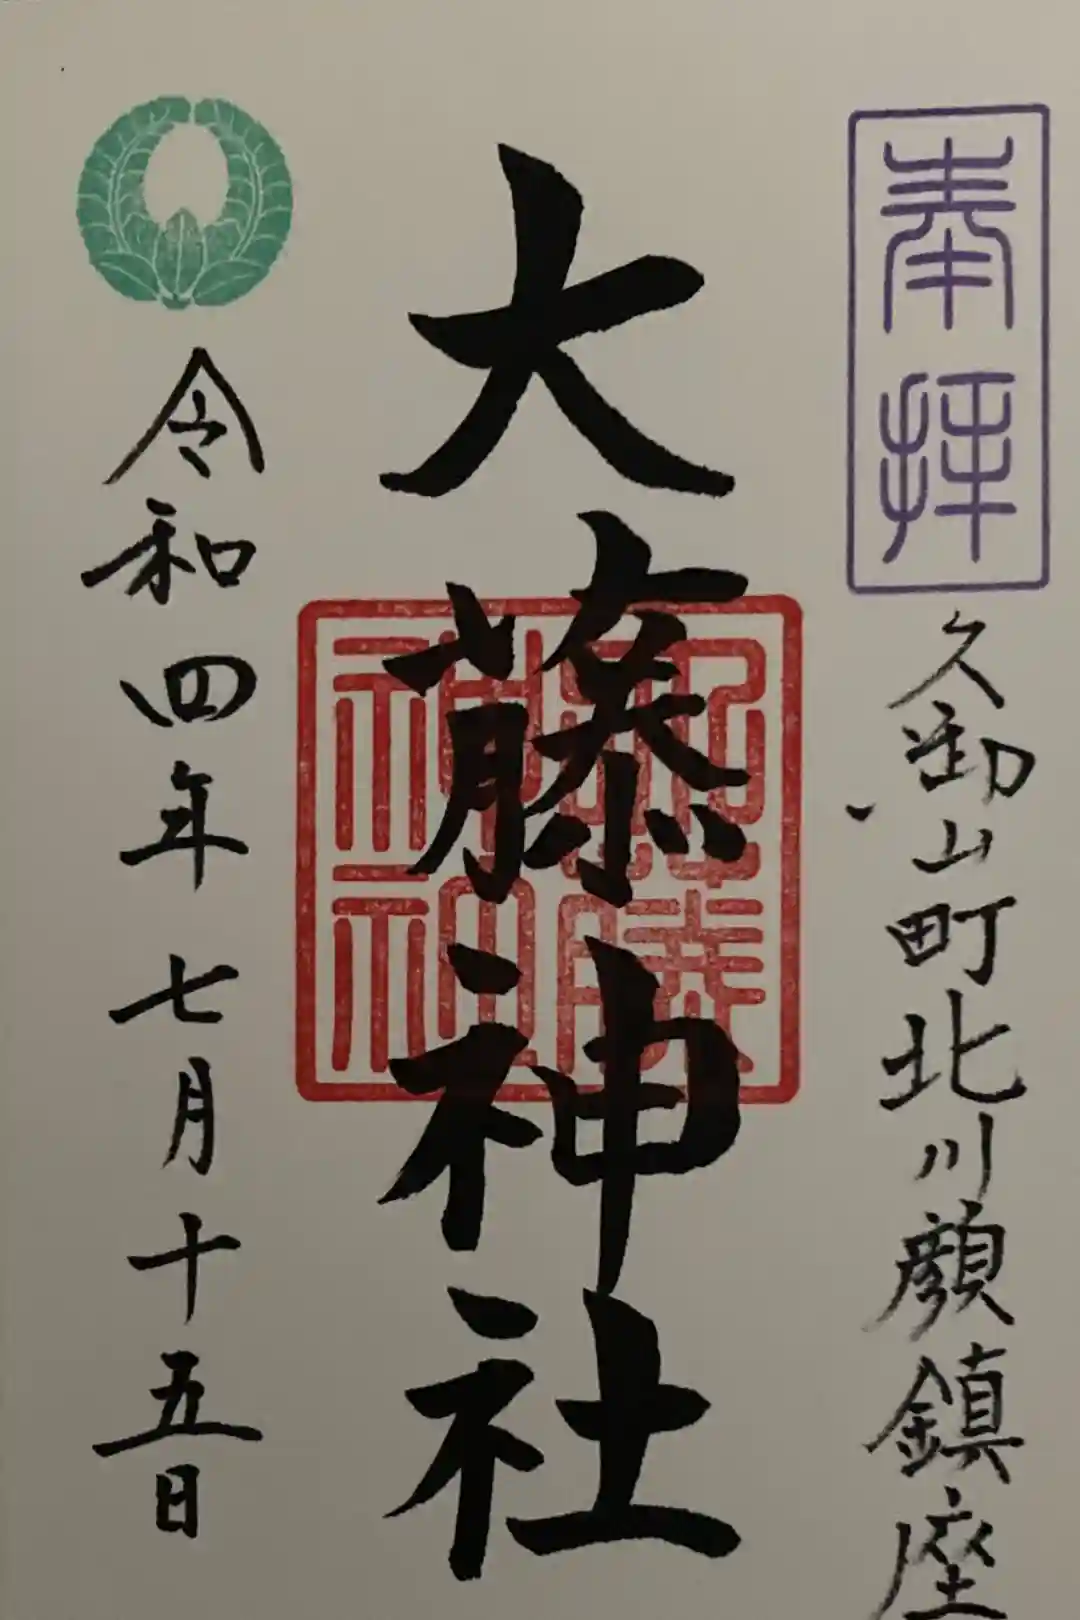 奉拝
久御山町北川顔鎮座
大藤神社
令和四年七月十五日